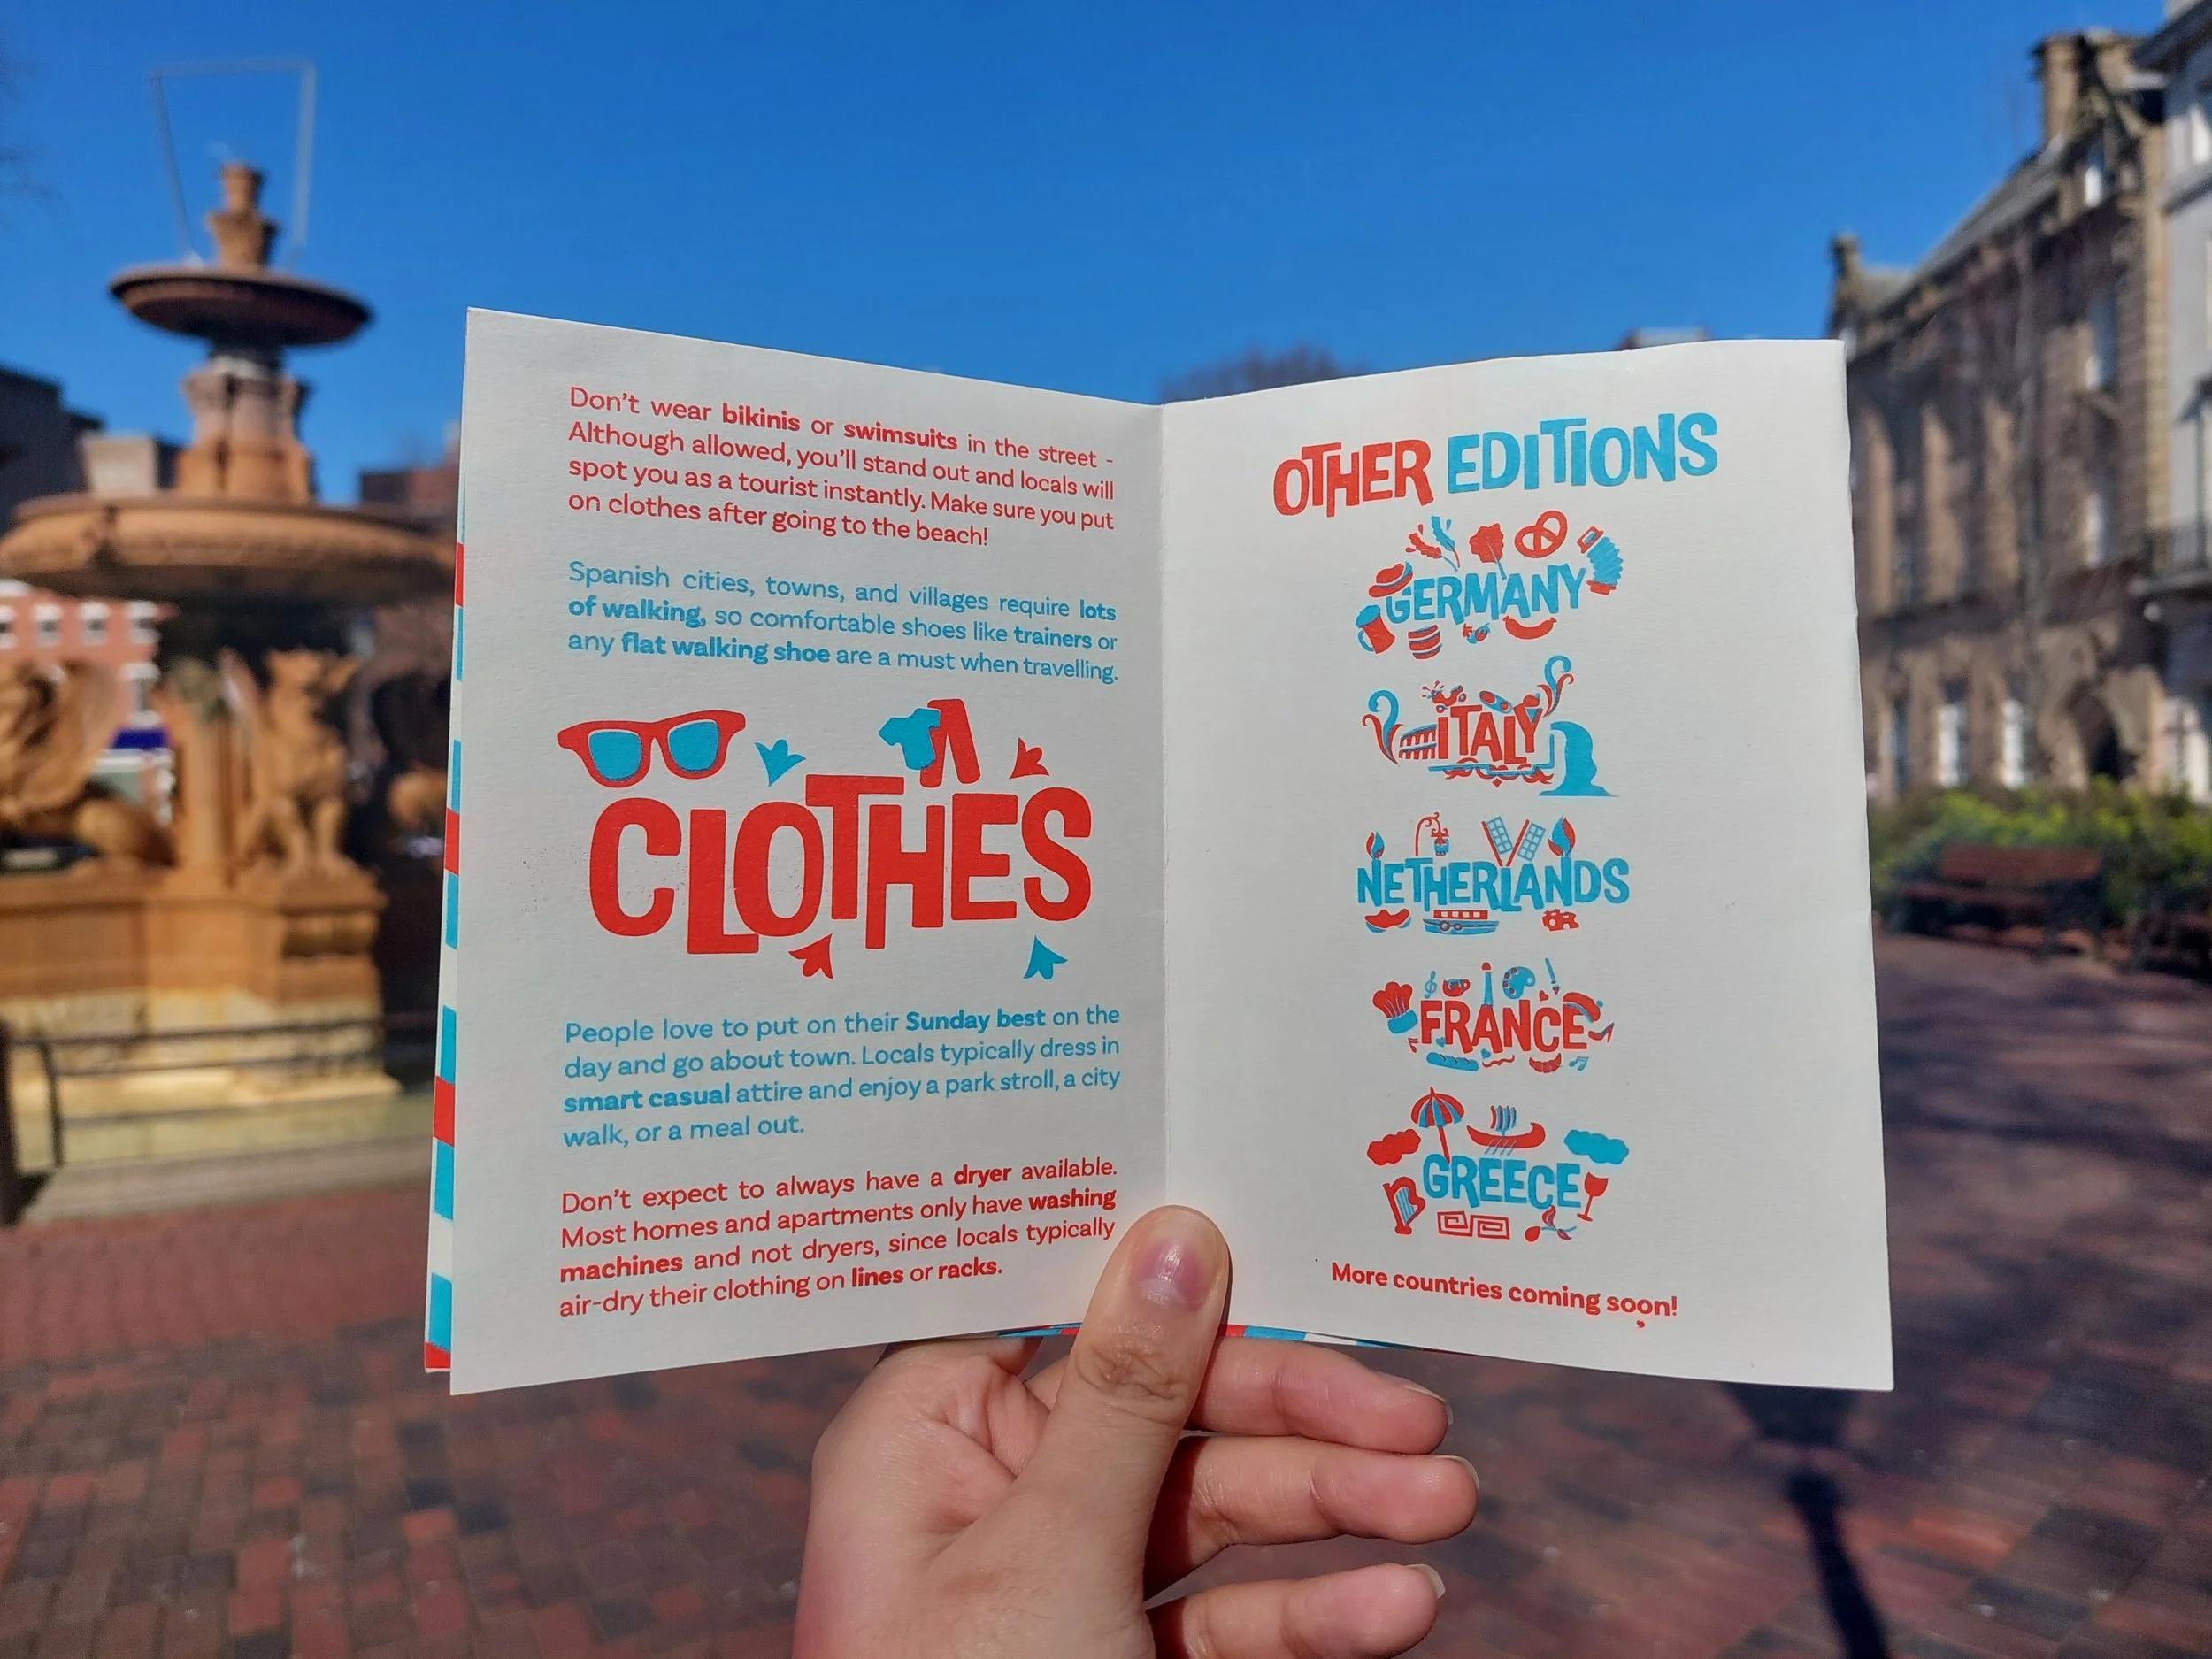 Don't wear bikinis or swimsuits in the street -
Although allowed, you'll stand out and locals will
spot you as a tourist instantly. Make sure you put
on clothes after going to the beach!
Spanish cities, towns, and villages require lots
of walking, so comfortable shoes like trainers or
any flat walking shoe are a must when travelling.
CLOTHES
People love to put on their Sunday best on the
day and go about town. Locals typically dress in
smart casual attire and enjoy a park stroll, a city
walk, or a meal out.
Don't expect to always have a dryer available.
Most homes and apartments only have washing
machines and not dryers, since locals typically
air-dry their clothing on lines or racks.
OTHER EDITIONS
GERMANY
ITALY
NETHERLANDS
FRANCE
GREECE
More countries coming soon!